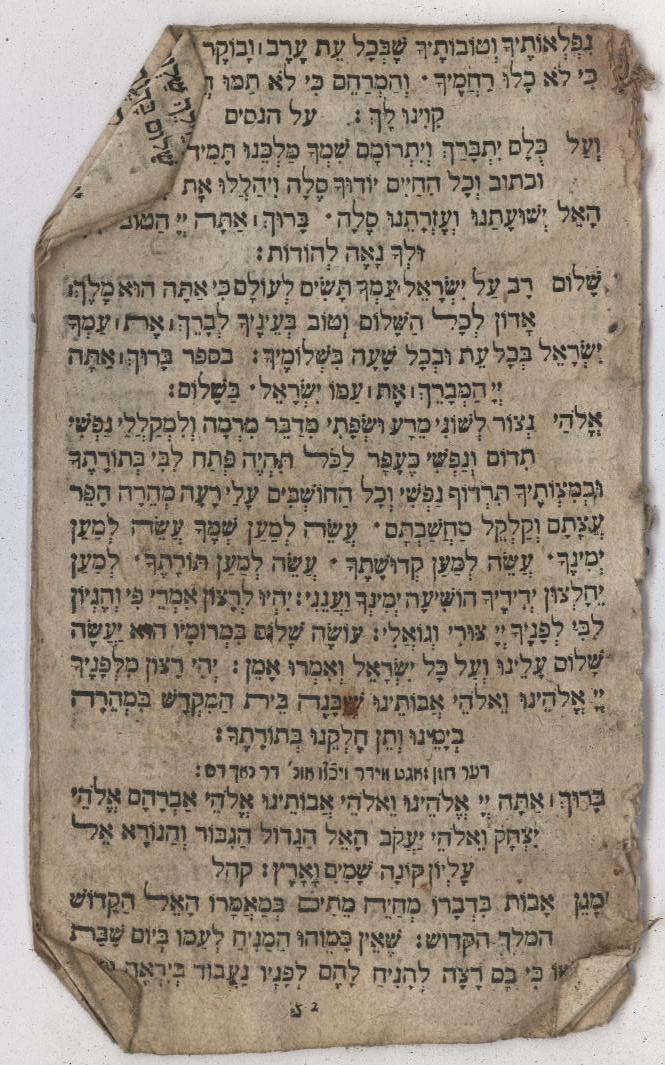 נִפְלְאוֹתֶיךָ וְטוֹבוֹתֶיךָ שֶׁבְּכָל עֵת עָרֵב ׀ וָבוֹקֶר
כִּי לֹא כָלוּ רַחֲמֶיךָ · וְהַמְרַחֵם כִּי לֹא תַמּוּ
קִוִּינוּ לָךְ : על הנסים
וְעַל כֻּלָּם יִתְבָּרַךְ וְיִתְרוֹמַם שִׁמְךָ מַלְכֵּנוּ תָּמִיד
וכתוב וְכָל הַחַיִּים יוֹדוּךָ סֶּלָה וִיהַלְלוּ אֶת
הָאֵל יְשׁוּעָתֵנוּ וְעֶזְרָתֵנוּ סֶלָה · בָּרוּךְ ׀ אַתָּה יְיָ הַטוֹב
וּלְךָ נָאֶה לְהוֹדוֹת :
שָׁלוֹם רָב עַל יִשְׂרָאֵל עַמְּךָ תָּשִׂים לְעוֹלָם כִּי אַתָּה הוּא מֶלֶךְ ׀
אָדוֹן לְכָל הַשָּׁלוֹם וְטוֹב בְּעֵינֶיךָ לְבָרֵךְ ׀ אֶת ׀ עַמְּךָ
יִשְׂרָאֵל בְּכָל עֵת וּבְכָל שָׁעָה בִּשְׁלוֹמֶיךָ : בספר בָּרוּךְ ׀ אַתָּה
יְיָ הַמְּבָרֵךְ ׀ אֶת ׀ עַמּוֹ יִשְׂרָאֵל · בַּשָּׁלוֹם :
אֱלֹהַי נְצוֹר לְשׁוֹנִי מֵרָע וּשְׂפָתַי מִדַּבֵּר מִרְמָה וְלִמְקַלְלַי נַפְשִׁי
תִדּוֹם וְנַפְשִׁי כֶּעָפָר לַכֹּל תִּהְיֶה פְּתַח לִבִּי בְּתוֹרָתֶךָ
וּבְמִצְוֹתֶיךָ תִּרְדּוֹף נַפְשִׁי וְכָל הַחוֹשְׁבִים עָלַי רָעָה מְהֵרָה הָפֵר
עֲצָתָם וְקַלְקֵל מַחֲשַׁבְתָּם · עֲשֵׂה לְמַעַן שְׁמֶךָ עֲשֵׂה לְמַעַן
יְמִינֶךָ · עֲשֵׂה לְמַעַן קְדוּשָׁתֶךָ · עֲשֵׂה לְמַעַן תּוֹרָתֶךָ · לְמַעַן
יֵחָלְצוּן יְדִידֶיךָ הוֹשִׁיעָה יְמִינְךָ וַעֲנֵנִי : יִהְיוּ לְרָצוֹן אִמְרֵי פִי וְהֶגְיוֹן
לִבִּי לְפָנֶיךָ יְיָ צוּרִי וְגוֹאֲלִי : עוֹשֶׂה שָׁלוֹם בִּמְרוֹמָיו הוּא יַעֲשֶׂה
שָׁלוֹם עָלֵינוּ וְעַל כָּל יִשְׂרָאֵל וְאִמְרוּ אָמֵן : יְהִי רָצוֹן מִלְּפָנֶיךָ
יְיָ אֱלֹהֵינוּ וֵאלֹהֵי אֲבוֹתֵינוּ שֶׁיִּבָּנֶה בֵּית הַמִּקְדָּשׁ בִּמְהֵרָה
בְיָמֵינוּ וְתֵן חֶלְקֵנוּ בְּתוֹרָתֶךָ :
דער חזן זאגט
בָּרוּךְ ׀ אַתָּה יְיָ אֱלֹהֵינוּ וֵאלֹהֵי אֲבוֹתֵינוּ אֱלֹהֵי אַבְרָהָם אֱלֹהֵי
יִצְחָק וֵאלֹהֵי יַעֲקֹב הָאֵל הַגָּדוֹל הַגִּבּוֹר וְהַנּוֹרָא אֵל
עֶלְיוֹן קוֹנֵה שָׁמַיִם וָאָרֶץ : קהל
מָגֵן אָבוֹת בִּדְבָרוֹ מְחַיֵּה מֵתִים בְּמַאֲמָרוֹ הָאֵל הַקָּדוֹשׁ
הַמֶּלֶךְ הַקָּדוֹשׁ : שֶׁאֵין כָּמוֹהוּ הַמֵּנִיחַ לְעַמּוֹ בְּיוֹם שַׁבַּת
כִּי בָם רָצָה לְהָנִיחַ לָהֶם לְפָנָיו נַעֲבוֹד בְּיִרְאָה